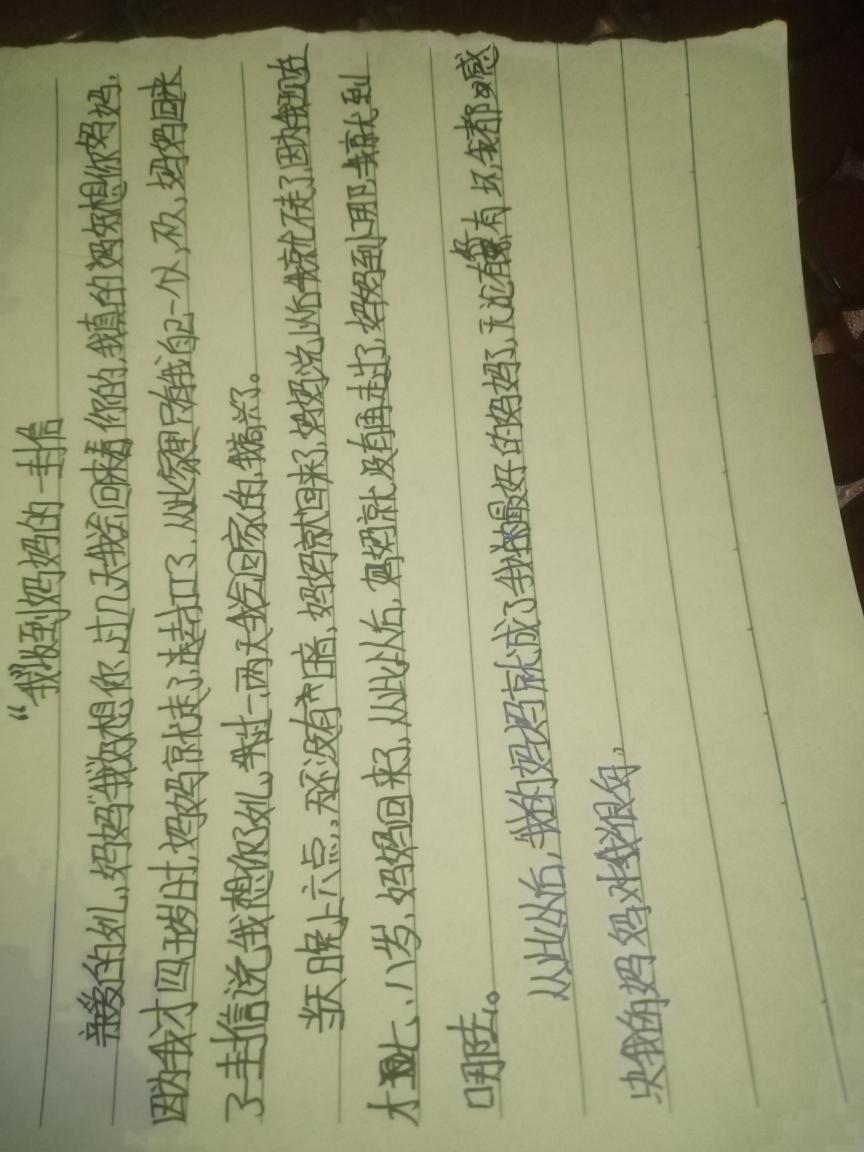 “我收到妈妈的一封信
亲爱的女儿,妈妈“我好想你,过几天我会回来看你的,我真的好想你妈妈,
因为我才四五岁时,妈妈就走了,走打工了,从此家里只有我自己一个人,不久,妈妈回来
了一封信说我想你了女儿,我过一,两天我会回家的,我高兴了。
当天晚上六点,天还没有暗,妈妈就回来了,妈妈说,以后我就不走了,因为我现在
才七、八岁,妈妈回来了,从此以后,妈妈就没有再走了,妈妈到哪我就到
哪。
从此以后,我的妈妈就成了我最好的妈妈了,无论有坏,我都感
我的妈妈对我很好,